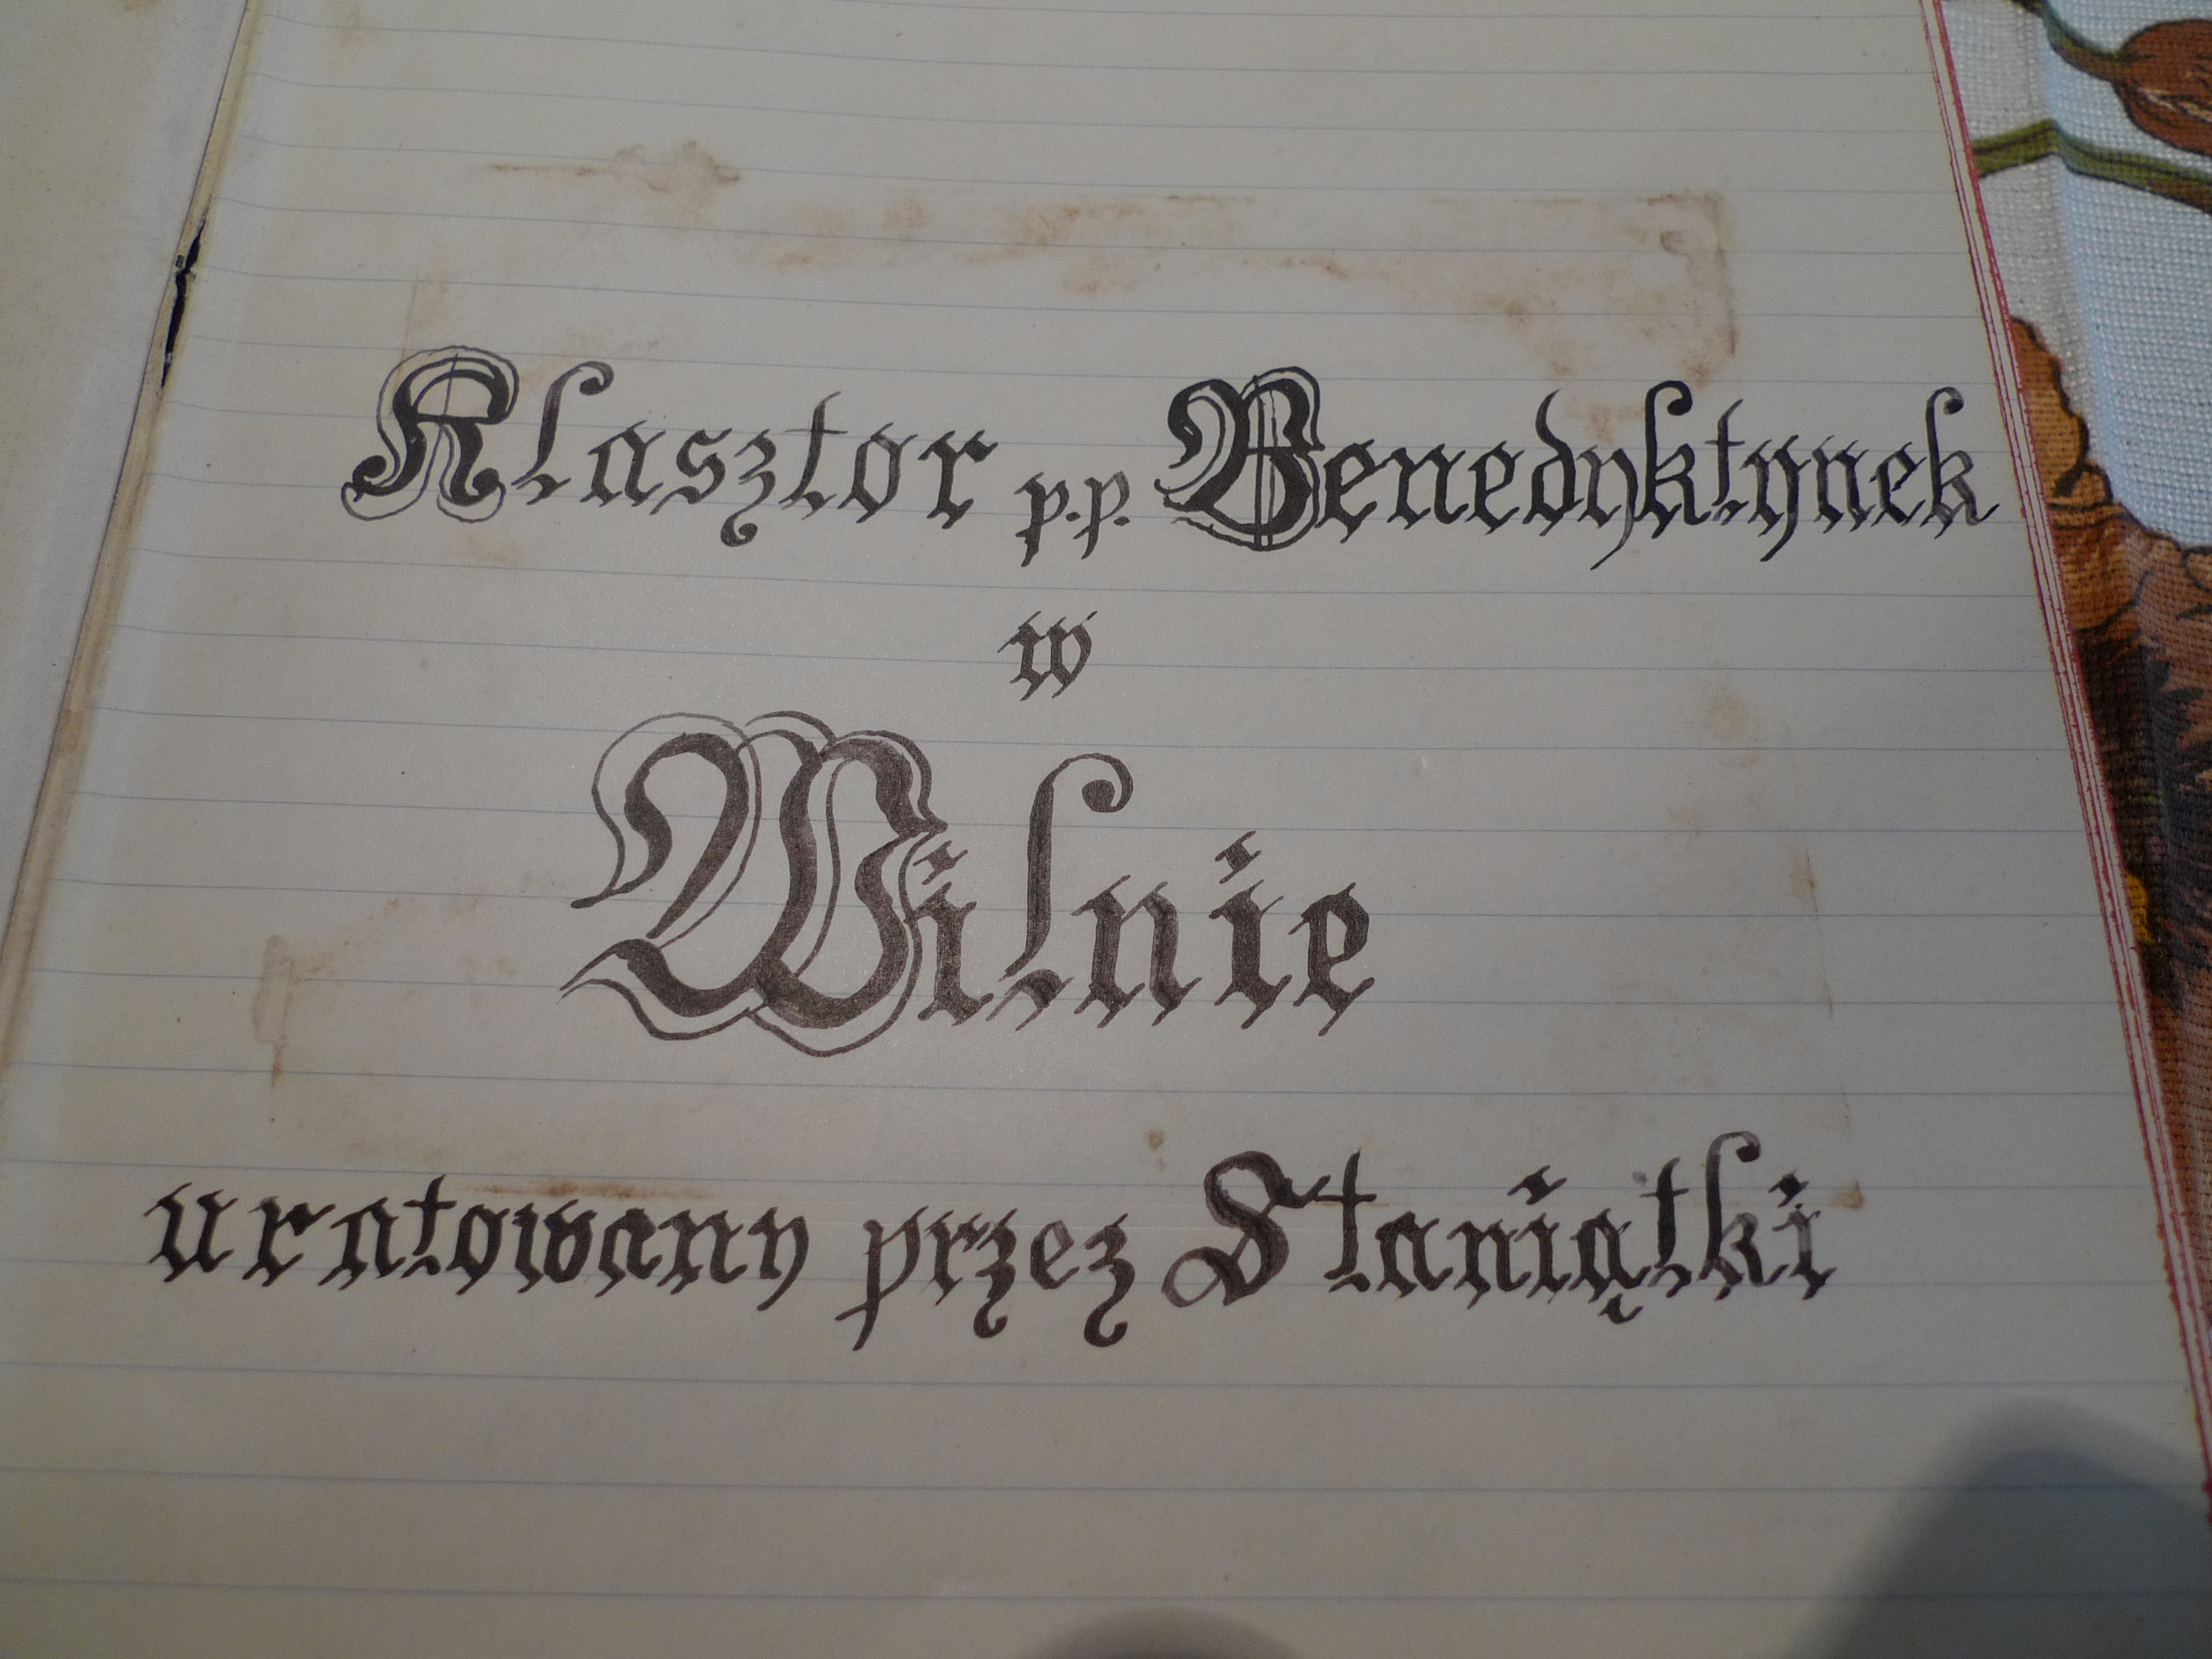 Klasztor p.p. Benedyktynek
w
Wilnie
uratowany przez Staniątki